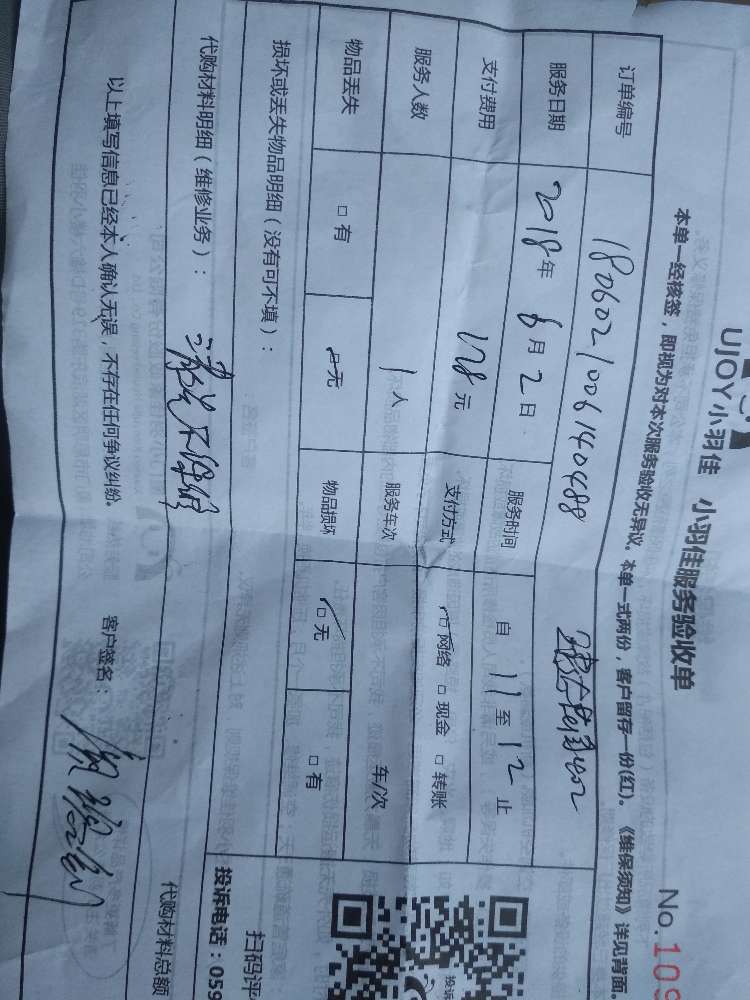 UJOY小羽佳 小羽佳服务验收单
No.109
本单一经核签，即视为对本次服务验收无异议。本单一式两份，客户留存一份(红)。《维保须知》详见背面。
订单编号 1806021006140488
服务日期 2018年 6月 2日 服务时间 自 11 至 12 止
支付费用 128元 支付方式 ☑网络 □现金 □转账
服务人数 1人 服务车次 车/次
物品丢失 □有 ☑无 物品损坏 ☑无 □有
损坏或丢失物品明细（没有可不填）：
代购材料明细（维修业务）：
代购材料总额
以上填写信息已经本人确认无误，不存在任何争议纠纷。 客户签名：
扫码评
投诉电话：059
投诉